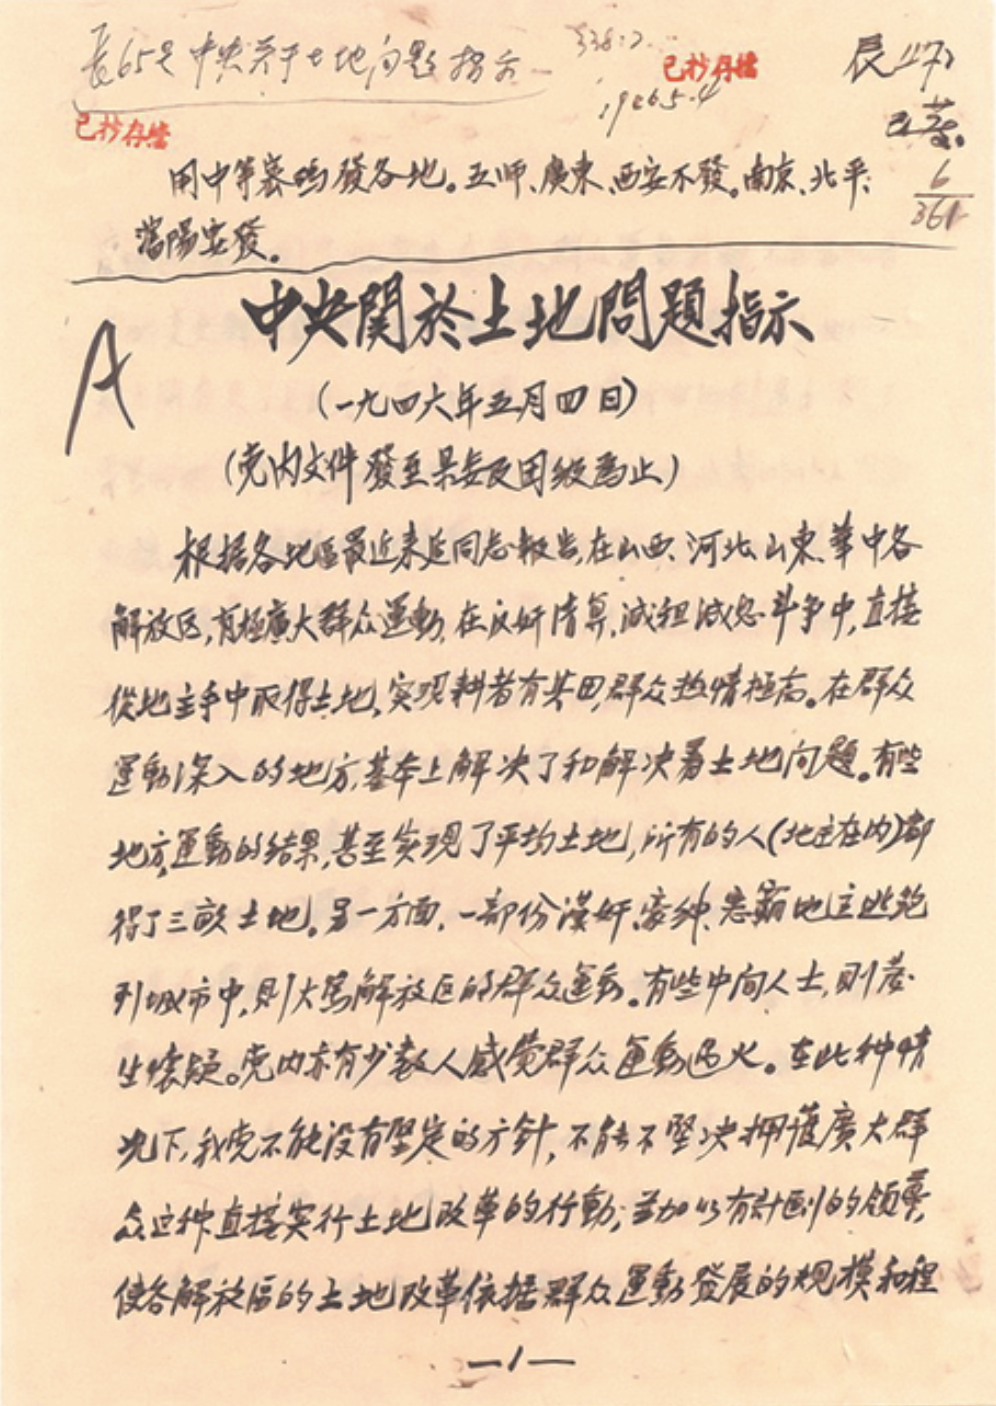 長65号中央关于土地问题指示
338:2
已抄存档
1946.5.4
長
已发.
6
361
已抄存档
用中等密码發各地。五師、廣東、西安不發。南京、北平、
瀋陽妥發。
中央關於土地問題指示
A
(一九四六年五月四日)
(党内文件發至县委及团级為止)
根据各地區最近来延同志報告,在山西、河北、山東、華中各
解放区,有極廣大群众運動,在反奸清算,减租减息斗争中,直接
從地主手中取得土地,实现耕者有其田,群众热情極高。在群众
運動深入的地方,基本上解决了和解决着土地问題。有些
地方,運動的结果,甚至实现了平均土地,所有的人(地主在内)都
得了三畝土地。另一方面,一部份漢奸、豪绅、恶霸地主逃跑
到城市中,则大罵解放区的群众運動。有些中间人士,则發
生懷疑。党内亦有少数人感觉群众運動过火。在此种情
况下,我党不能没有坚定的方針,不能不坚决拥護廣大群
众这种直接实行土地改革的行動,並加以有計劃的领導,
使各解放區的土地改革依据群众運動發展的规模和程
—1—